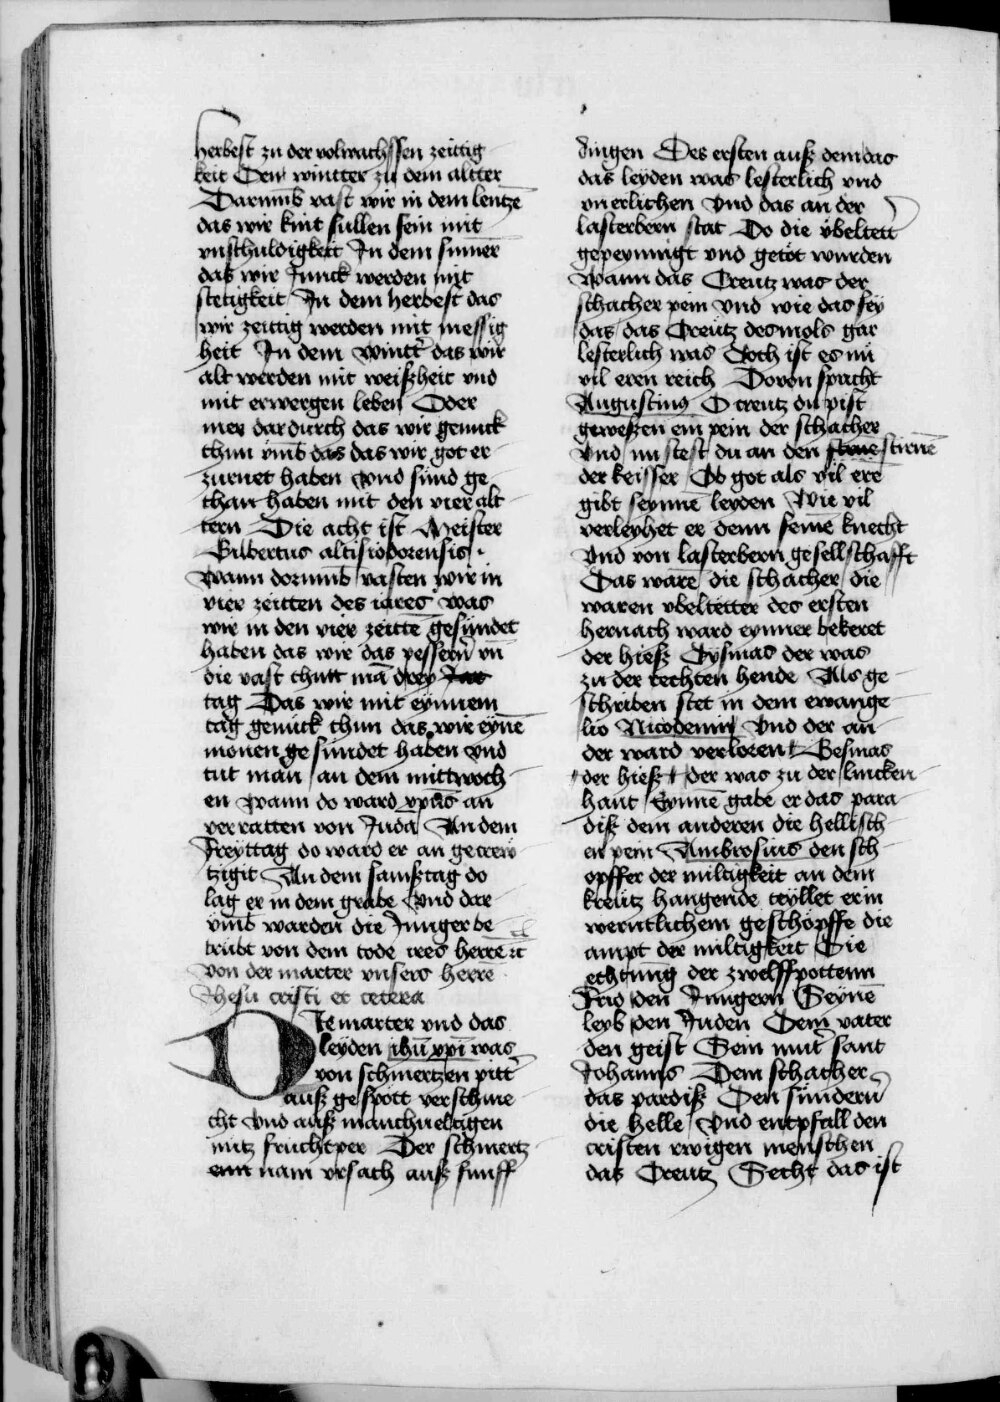 herbest zu der volwachssen zeittig
keit Den wintter zu dem altter
Darumb vast wir in dem lentze
das wir kint sullen sein mit
vnschuldigkeit In dem summer
das wir Junck werden mit
stetigkeit In dem herbest das
wir zeittig werden mit messig
heit In dem wintt̉ das wir
alt werden mit weiszheit vnd
mit erwergen leben Oder
mer dardurch das wir genuck
thun vmb das das wir got er
zurnet haben Vnd sünd ge
than haben mit den vier alt
tern Die acht ist Meister
Gilbertus altisiodorensis ·
Wann dorumb vasten wir in
vier zeitten des iares was
wir in den vier zeittē gesündet
haben das wir das pessern̄ vn̄
die vast thutt mā drey Jar
tag Das wir mit eynnem
tag genuck thun das wir eynē
monen gesündet haben vnd
tut man an dem mittwoch
en Wann do ward xpūs an
verratten von Juda An dem
Freyttag do ward er an gecrew
tzigit An dem samsztag do
lag er in dem grabe Vnd dar
vmb warden die Junger be
trübt von dem tode ires herrē ꝛc
von der marter vnsers herrē
Jhesu cristi et cetera
DIe marter vnd das
leyden ihū xpī was
von schmertzen pitt̉
ausz gespött verschme
cht Vnd ausz manchueltigen
nutz fruchtper Der schmertz
enn nam vrsach ausz funff
dingen Des ersten ausz dem das
das leyden was lesterlich vnd
vnerlichen Vnd das an der
lasterbern stat Do die v̈beltett̉
gepeynnigt vnd getöt wurden
Wann das Creutz was der
schacher pein Vnd wie das sey
das das Creütz desmols gar
lesterlich was Doch ist es nü
vil eren reich Dovon spricht
Augustinus O creutz du pist
geweszen ein pein der schacher
Vnd nu stest du an den stirnē
der keisser Ob got als vil ere
gibt seynnē leyden Wie vil
verleyhet er denn seinē knecht
Vnd von lasterbern gesellschafft
Das warē die schacher die
waren vbeltetter des ersten
hernach ward eynner bekeret
der hiesz Dysmas der was
zu der rechten hende Als ge
schriben stet in dem ewange
lio Nicodemi Vnd der an
der ward verloren Gesmas
der hiesz der was zu der lincken
hant Eynnē gabe er das para
disz dem anderen die hellisch
en pein Ambrosius den sch
opffer der miltigkeit an dem
kreütz hangende teyllet er in
werntlichem geschöpffe die
ampt der miltigkeit Die
echtung der zwelffpottenn
Frid den Jungern Seynē
leyb den Juden Dem vater
den geist Sein mut̉ sant
Johanns Dem schacher
das pardisz Den sündern̄
die helle Vnd entpfall den
cristen rwigen menschen
das Creutz Secht das ist